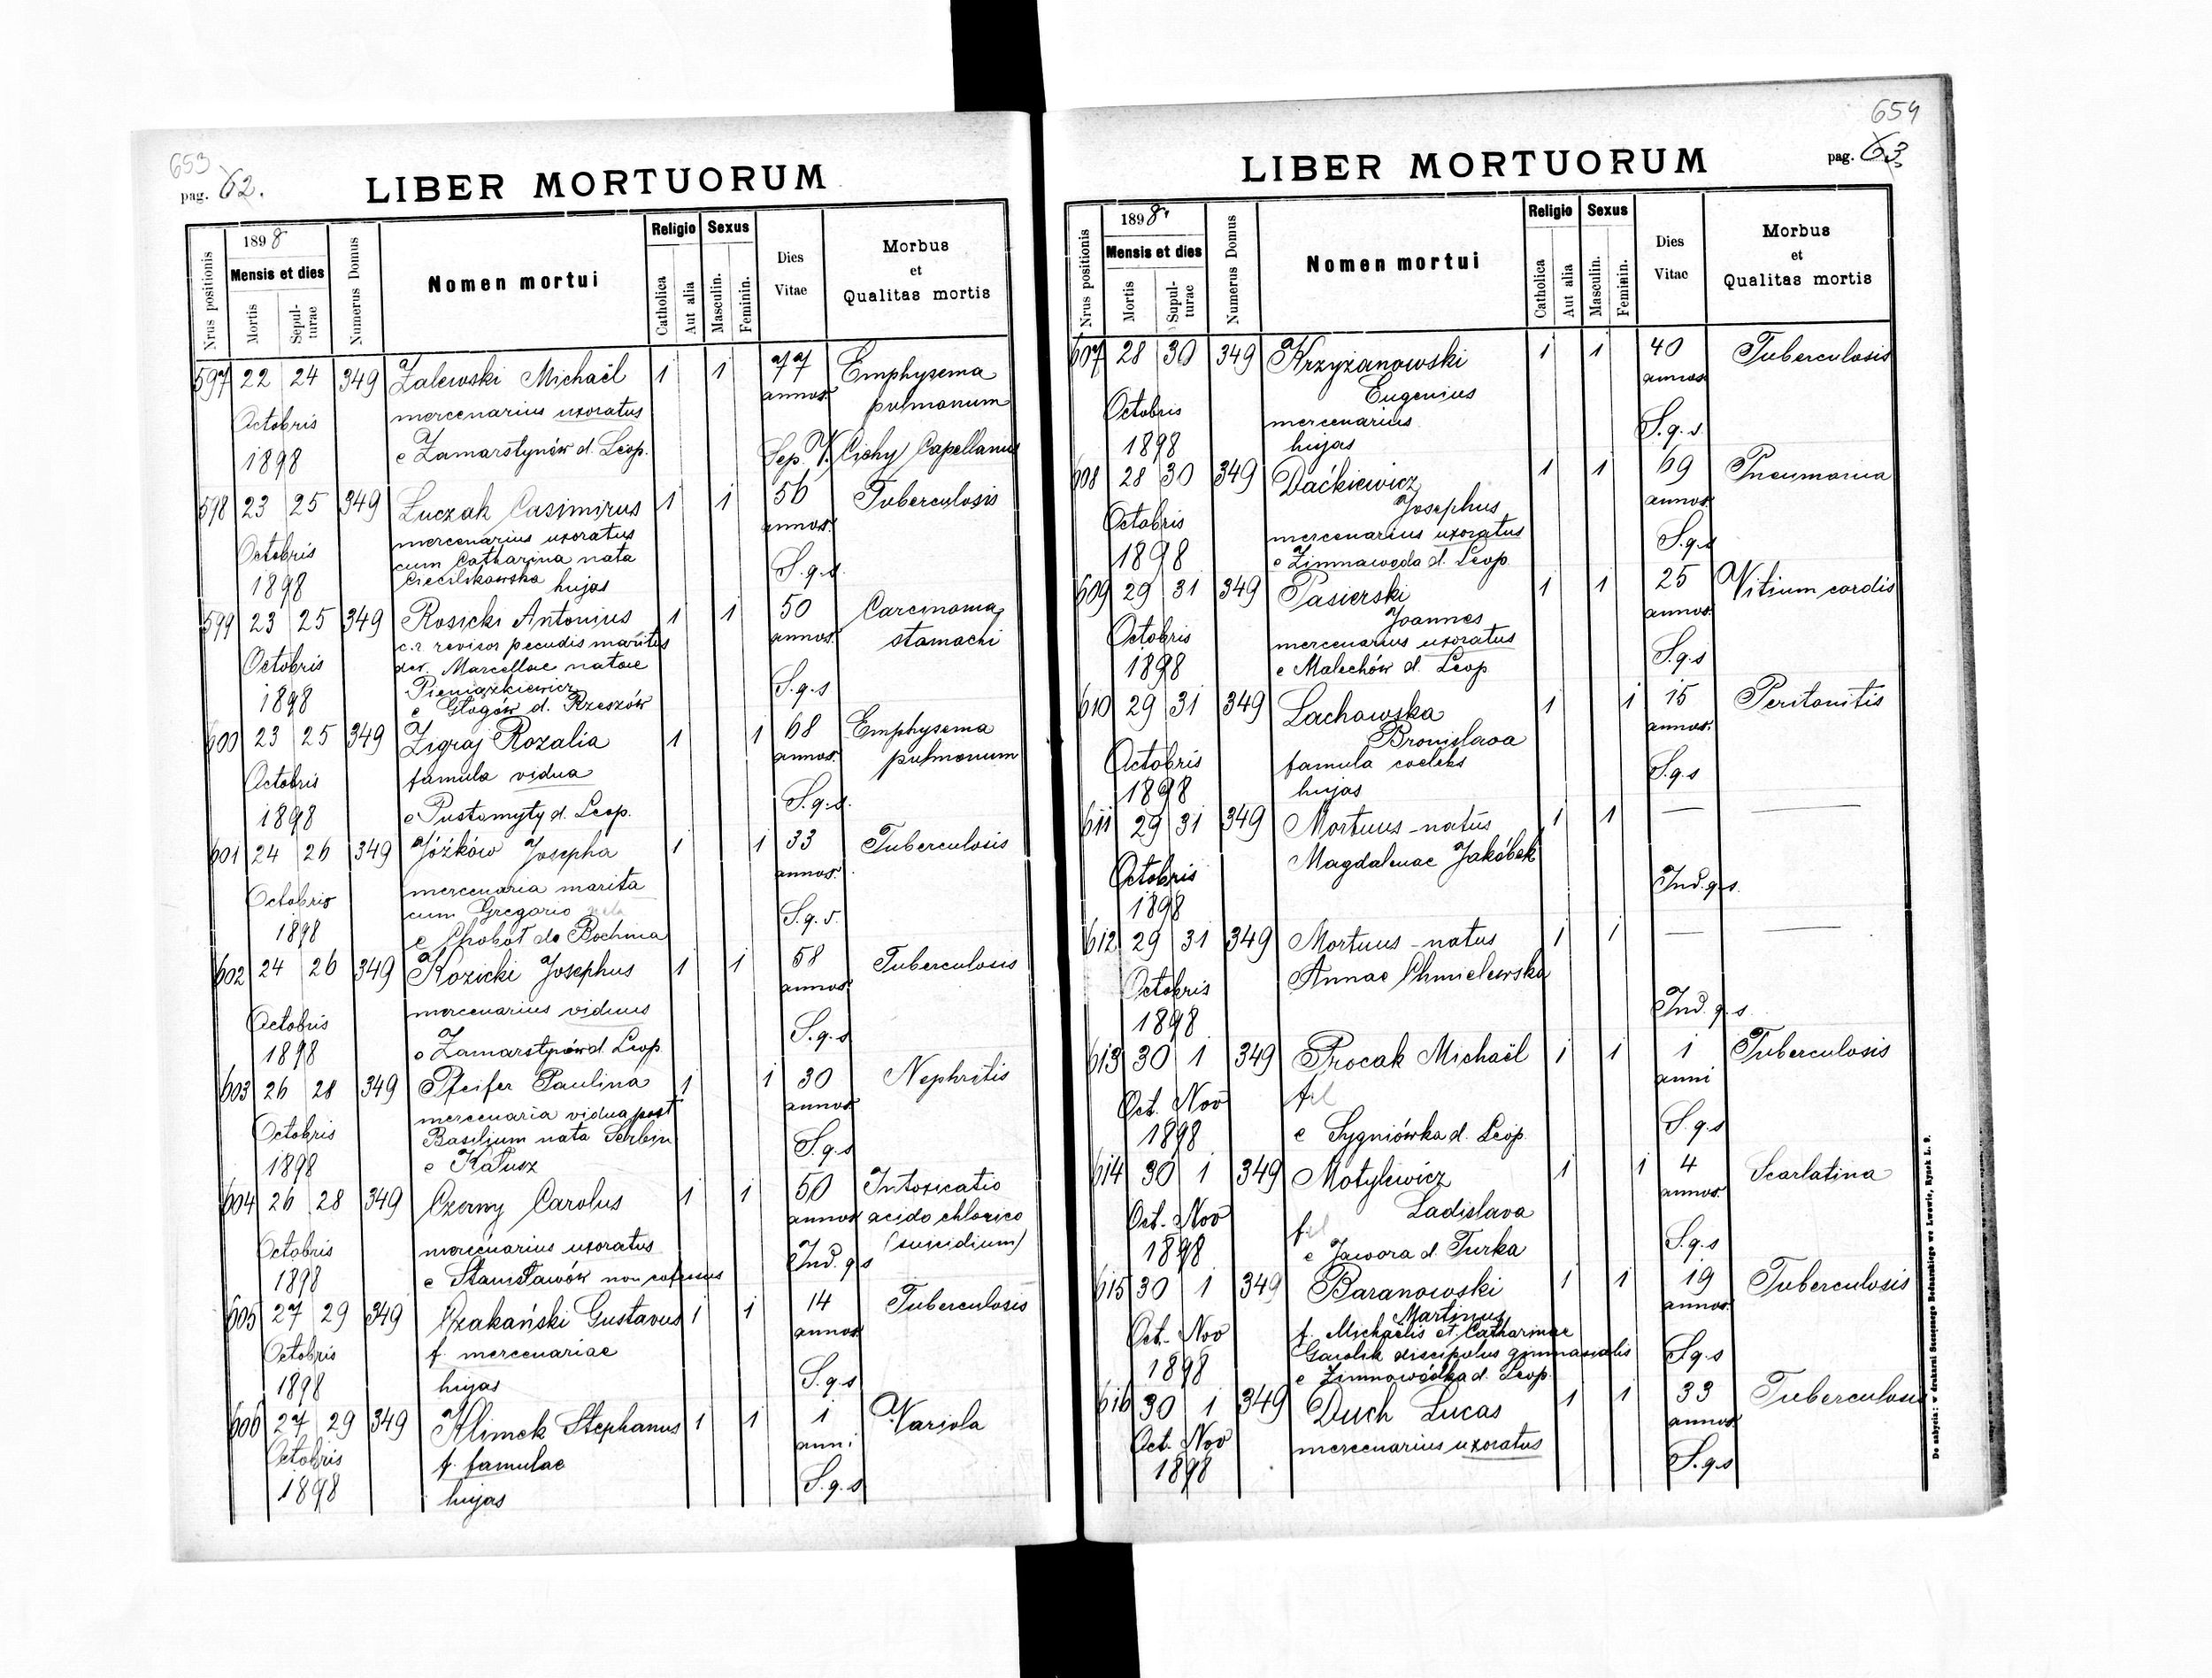 653
pag. 62.
LIBER MORTUORUM
Nrus positionis
1898
Mensis et dies
Mortis
Sepulturae
Numerus Domus
Nomen mortui
Religio
Catholica
Aut alia
Sexus
Masculin.
Feminin.
Dies Vitae
Morbus et Qualitas mortis
597 22 24 349 Zalewski Michaël 1 1 77 Emphysema
mercenarius uxoratus annos pulmonum
Octobris
1898 e Zamarstynów d. Leop. Sep. V. Cichy Capellanus
598 23 25 349 Łuczak Casimirus 1 1 56 Tuberculosis
mercenarius uxoratus annos
Octobris cum Catharina nata
1898 hujas S.q.s.
599 23 25 349 Rosicki Antonius 1 1 50 Carcinoma
c.r. revisor pecudis maritus annos stomachi
Octobris der. Marcellae natae
Pieniążkiewicz S.q.s
1898 e Głogów d. Rzeszów
600 23 25 349 Zigraj Rozalia 1 1 68 Emphysema
Octobris famula vidua annos pulmonum
1898 e Pustomyty d. Leop. S.q.s.
601 24 26 349 Jóźków Josepha 1 1 33 Tuberculosis
Octobris mercenaria marita annos
cum Gregorio S.q.s.
1898 e Chobot de Bochnia
602 24 26 349 Kozicki Josephus 1 1 58 Tuberculosis
Octobris mercenarius viduus annos
1898 e Zamarstynów d. Leop S.q.s
603 26 28 349 Pfeifer Paulina 1 1 30 Nephritis
mercenaria vidua post annos
Octobris Basilium nata Serbin
1898 e Kałusz S.q.s
604 26 28 349 Czerny Carolus 1 1 50 Intoxicatio
annos acido chlorico
Octobris mercenarius uxoratus (suicidium)
1898 e Stanisławów non Ind. q.s
605 27 29 349 Czakański Gustavus 1 1 14 Tuberculosis
Octobris f. mercenariae annos
1898 hujas S.q.s
606 27 29 349 Klimek Stephanus 1 1 1 Variola
Octobris f. famulae anni
1898 hujas S.q.s
654
pag. 63
LIBER MORTUORUM
Nrus positionis
1898
Mensis et dies
Mortis
Supulturae
Numerus Domus
Nomen mortui
Religio
Catholica
Aut alia
Sexus
Masculin.
Feminin.
Dies Vitae
Morbus et Qualitas mortis
607 28 30 349 Krzyżanowski 1 1 40 Tuberculosis
Eugenius annos
Octobris mercenarius
1898 hujas S.q.s.
608 28 30 349 Daćkiewicz 1 1 69 Pneumonia
Josephus annos
Octobris mercenarius uxoratus
1898 e Zimnawoda d. Leop S.q.s
609 29 31 349 Pasierski 1 1 25 Vitium cordis
Joannes annos
Octobris mercenarius uxoratus
1898 e Malechów d. Leop S.q.s
610 29 31 349 Lachowska 1 1 15 Peritonitis
Bronislava annos
Octobris famula coelebs
1898 hujas S.q.s
611 29 31 349 Mortuus-natus 1 1 — —
Octobris Magdalenae Jakóbek
1898 Ind. q.s.
612 29 31 349 Mortuus-natus 1 1 — —
Octobris Annae Chmielewska
1898 Ind. q.s.
613 30 1 349 Procak Michaël 1 1 1 Tuberculosis
Oct. Nov fil anni
1898 e Sygniówka d. Leop. S.q.s
614 30 1 349 Motylewicz 1 1 4 Scarlatina
Ladislava annos
Oct. Nov fil
1898 e Jawora d. Turka S.q.s
615 30 1 349 Baranowski 1 1 19 Tuberculosis
Martinus annos
Oct. Nov f. Michaëlis et Catharinae
Gawlik discipulus gimnasialis S.q.s
1898 e Zimnowódka d. Leop.
616 30 1 349 Duch Lucas 1 1 33 Tuberculosis
Oct. Nov mercenarius uxoratus annos
1898 S.q.s
Do nabycia: w drukarni Szczęsnego Bednarskiego we Lwowie, Rynek L. 9.